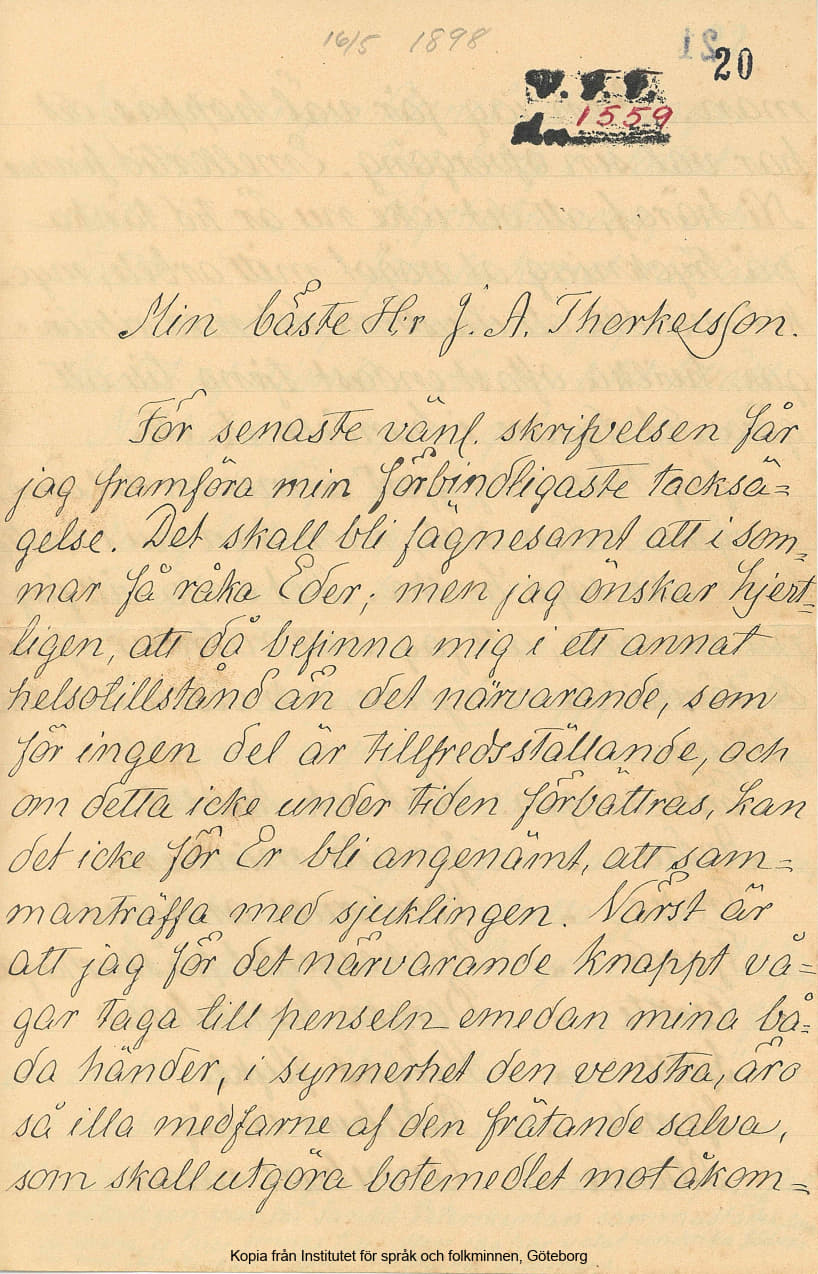 16/5 1898.
21
20
V. F. F.
dn 1559
Min bäste H:r J. A. Thorkelsson.
För senaste vänl. skrifvelsen får
jag framföra min förbindligaste tacksä=
gelse. Det skall bli fägnesamt att i som=
mar få råka Eder; men jag önskar hjert=
ligen, att då befinna mig i ett annat
helsotillstånd än det närvarande, som
för ingen del är tillfredsställande, och
om detta icke under tiden förbättras, kan
det icke för Er bli angenämt, att sam=
manträffa med sjuklingen. Värst är
att jag för det närvarande knappt vå=
gar taga till penseln emedan mina bå=
da händer, i synnerhet den venstra, äro
så illa medfarne af den frätande salva,
som skall utgöra botemedlet mot åkom=
Kopia från Institutet för språk och folkminnen, Göteborg